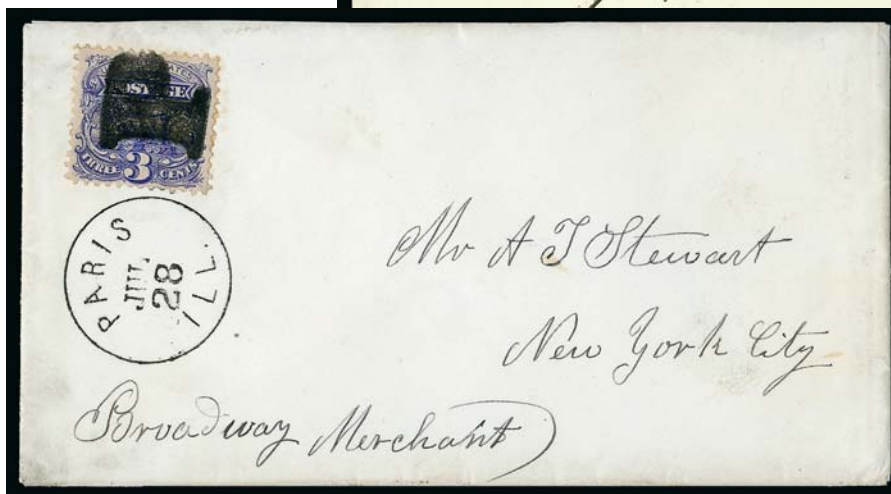 POSTAGE
THREE 3 CENTS
PARIS ILL.
JUL
28
Mr A T Stewart
New York City
Broadway Merchant